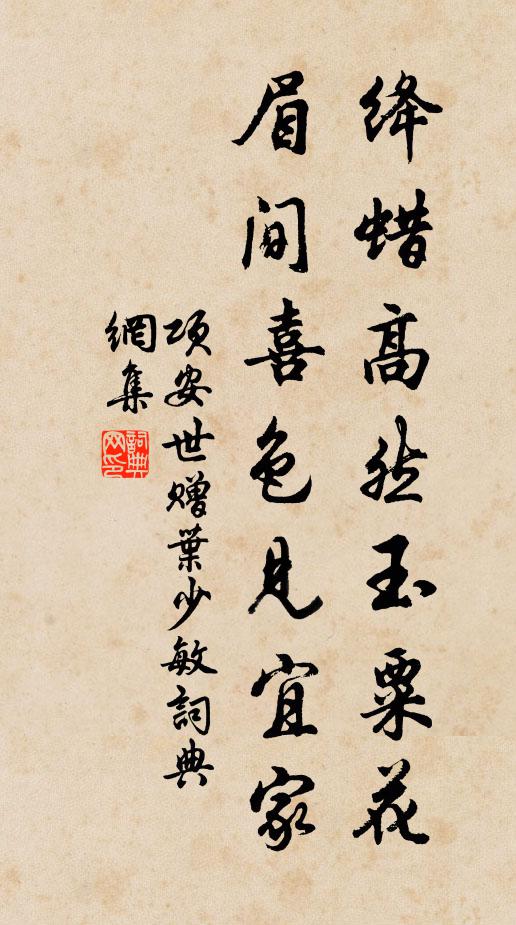 绛蜡高然玉粟花
眉间喜色见宜家
项安世赠葉少敏詞典
網集
詞典网印